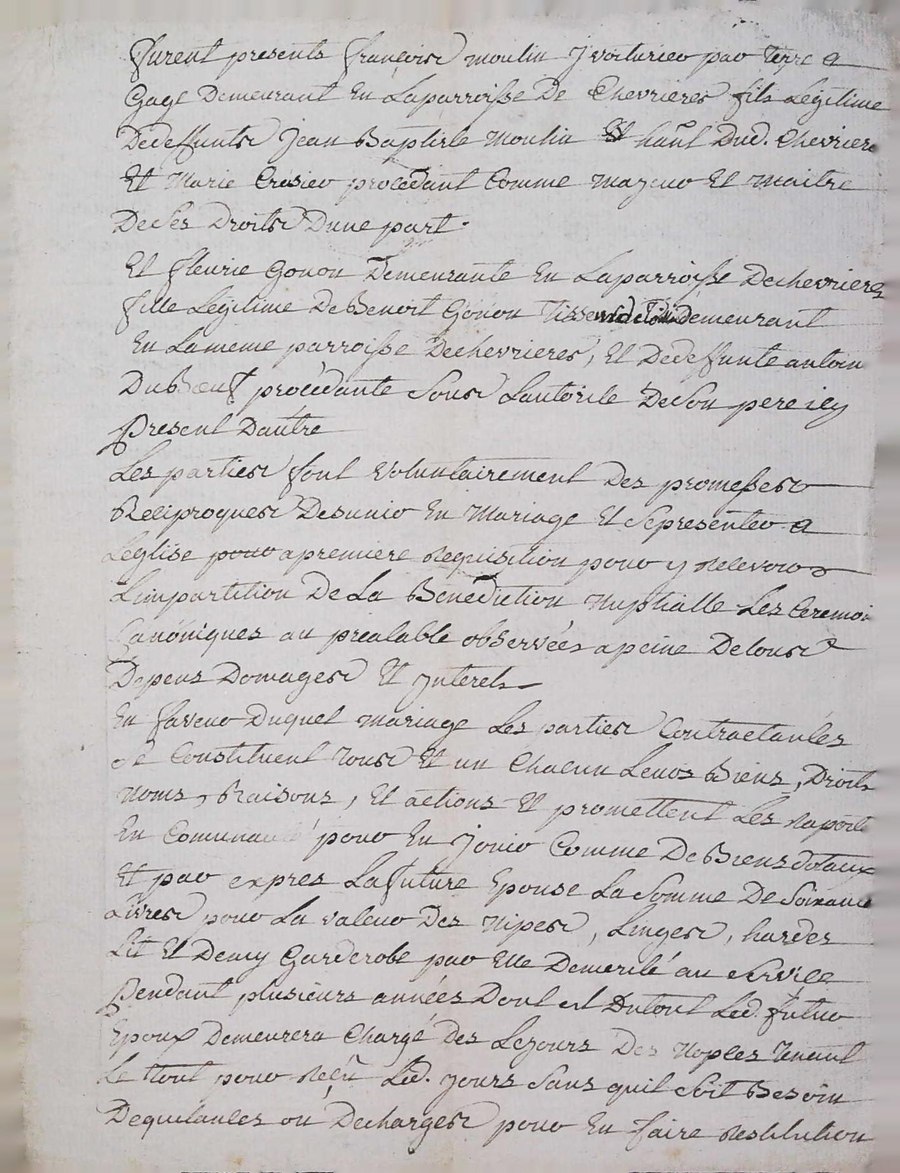 furent presents françois moulin Jvoiturier par terre a
Gage Demeurant En Laparroisse De Chevrieres fils Légitime
Dedeffunts Jean Baptiste Moulin hant Dud. Chevriere
Et Marie Crosier procédant Comme majeur Et maitre
DeSes Droits Dune part.
Et fleurie Gonon Demeurante En Laparroisse Dechevrieres
fille Légitime De Benoit Gonon demeurant
En Lameme parroisse Dechevrieres, Et Dedeffunte antoin
Duboeuf procédante Sous Lautorité DeSon pere icy
Present Dautre
Les parties font volontairement Des promesses
Reciproques Desunir En Mariage Et Sepresenter a
Léglise pour apremiere Requisition pour y Relevoir
Limpartition De La Bénédiction Nuptialle Les Ceremoi
Canóniques au préalable observées apeine Detous
Depens Domages Et Jnterets
En faveur Duquel mariage Les parties Contractantes
Se Constituent Tous Et un Chacun Leurs Biens, Droits
noms, Raisons, Et actions Et promettent Les Raport
En Communauté pour En Jouir Comme De Biens dotaux
Et par expres Lafuture Epouse La Somme De Soixante
Livres pour La valeur Des Nipes, Linges, hardes
Lit Et Demy Garderobe par Elle Demerité au Service
Pendant plusieurs années Dont et Dutout Led. futur
Epoux Demeurera Chargé Des Lejours Des Noples Tenant
Le tout pour Reçu Led. jours Sans quil Soit Besoin
Dequitances ou Decharges pour En faire Restitution